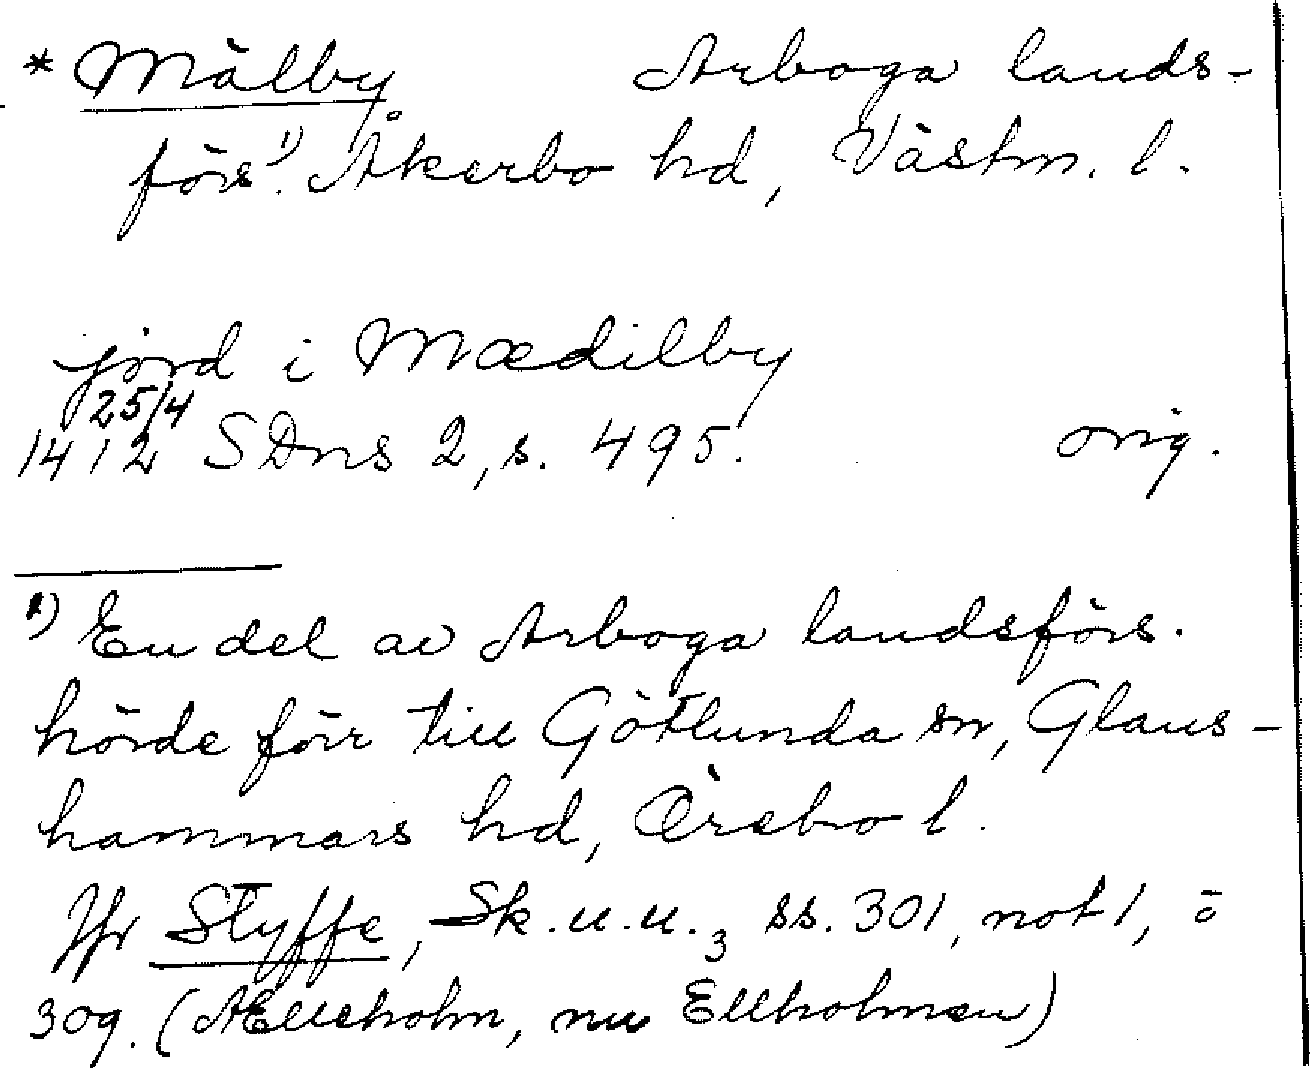 * Mälby Arboga lands-
förs.¹⁾ Åkerbo hd, Västm. l.
jord i Mædilby
25/4
1412 SDns 2, s. 495. orig.
1) En del av Arboga landsförs.
hörde förr till Götlunda sn, Glans-
hammars hd, Örebro l.
Jfr Styffe, Sk.u.u.₃ ss. 301, not 1, o
309. (Ælleholm, nu Ellholmen)